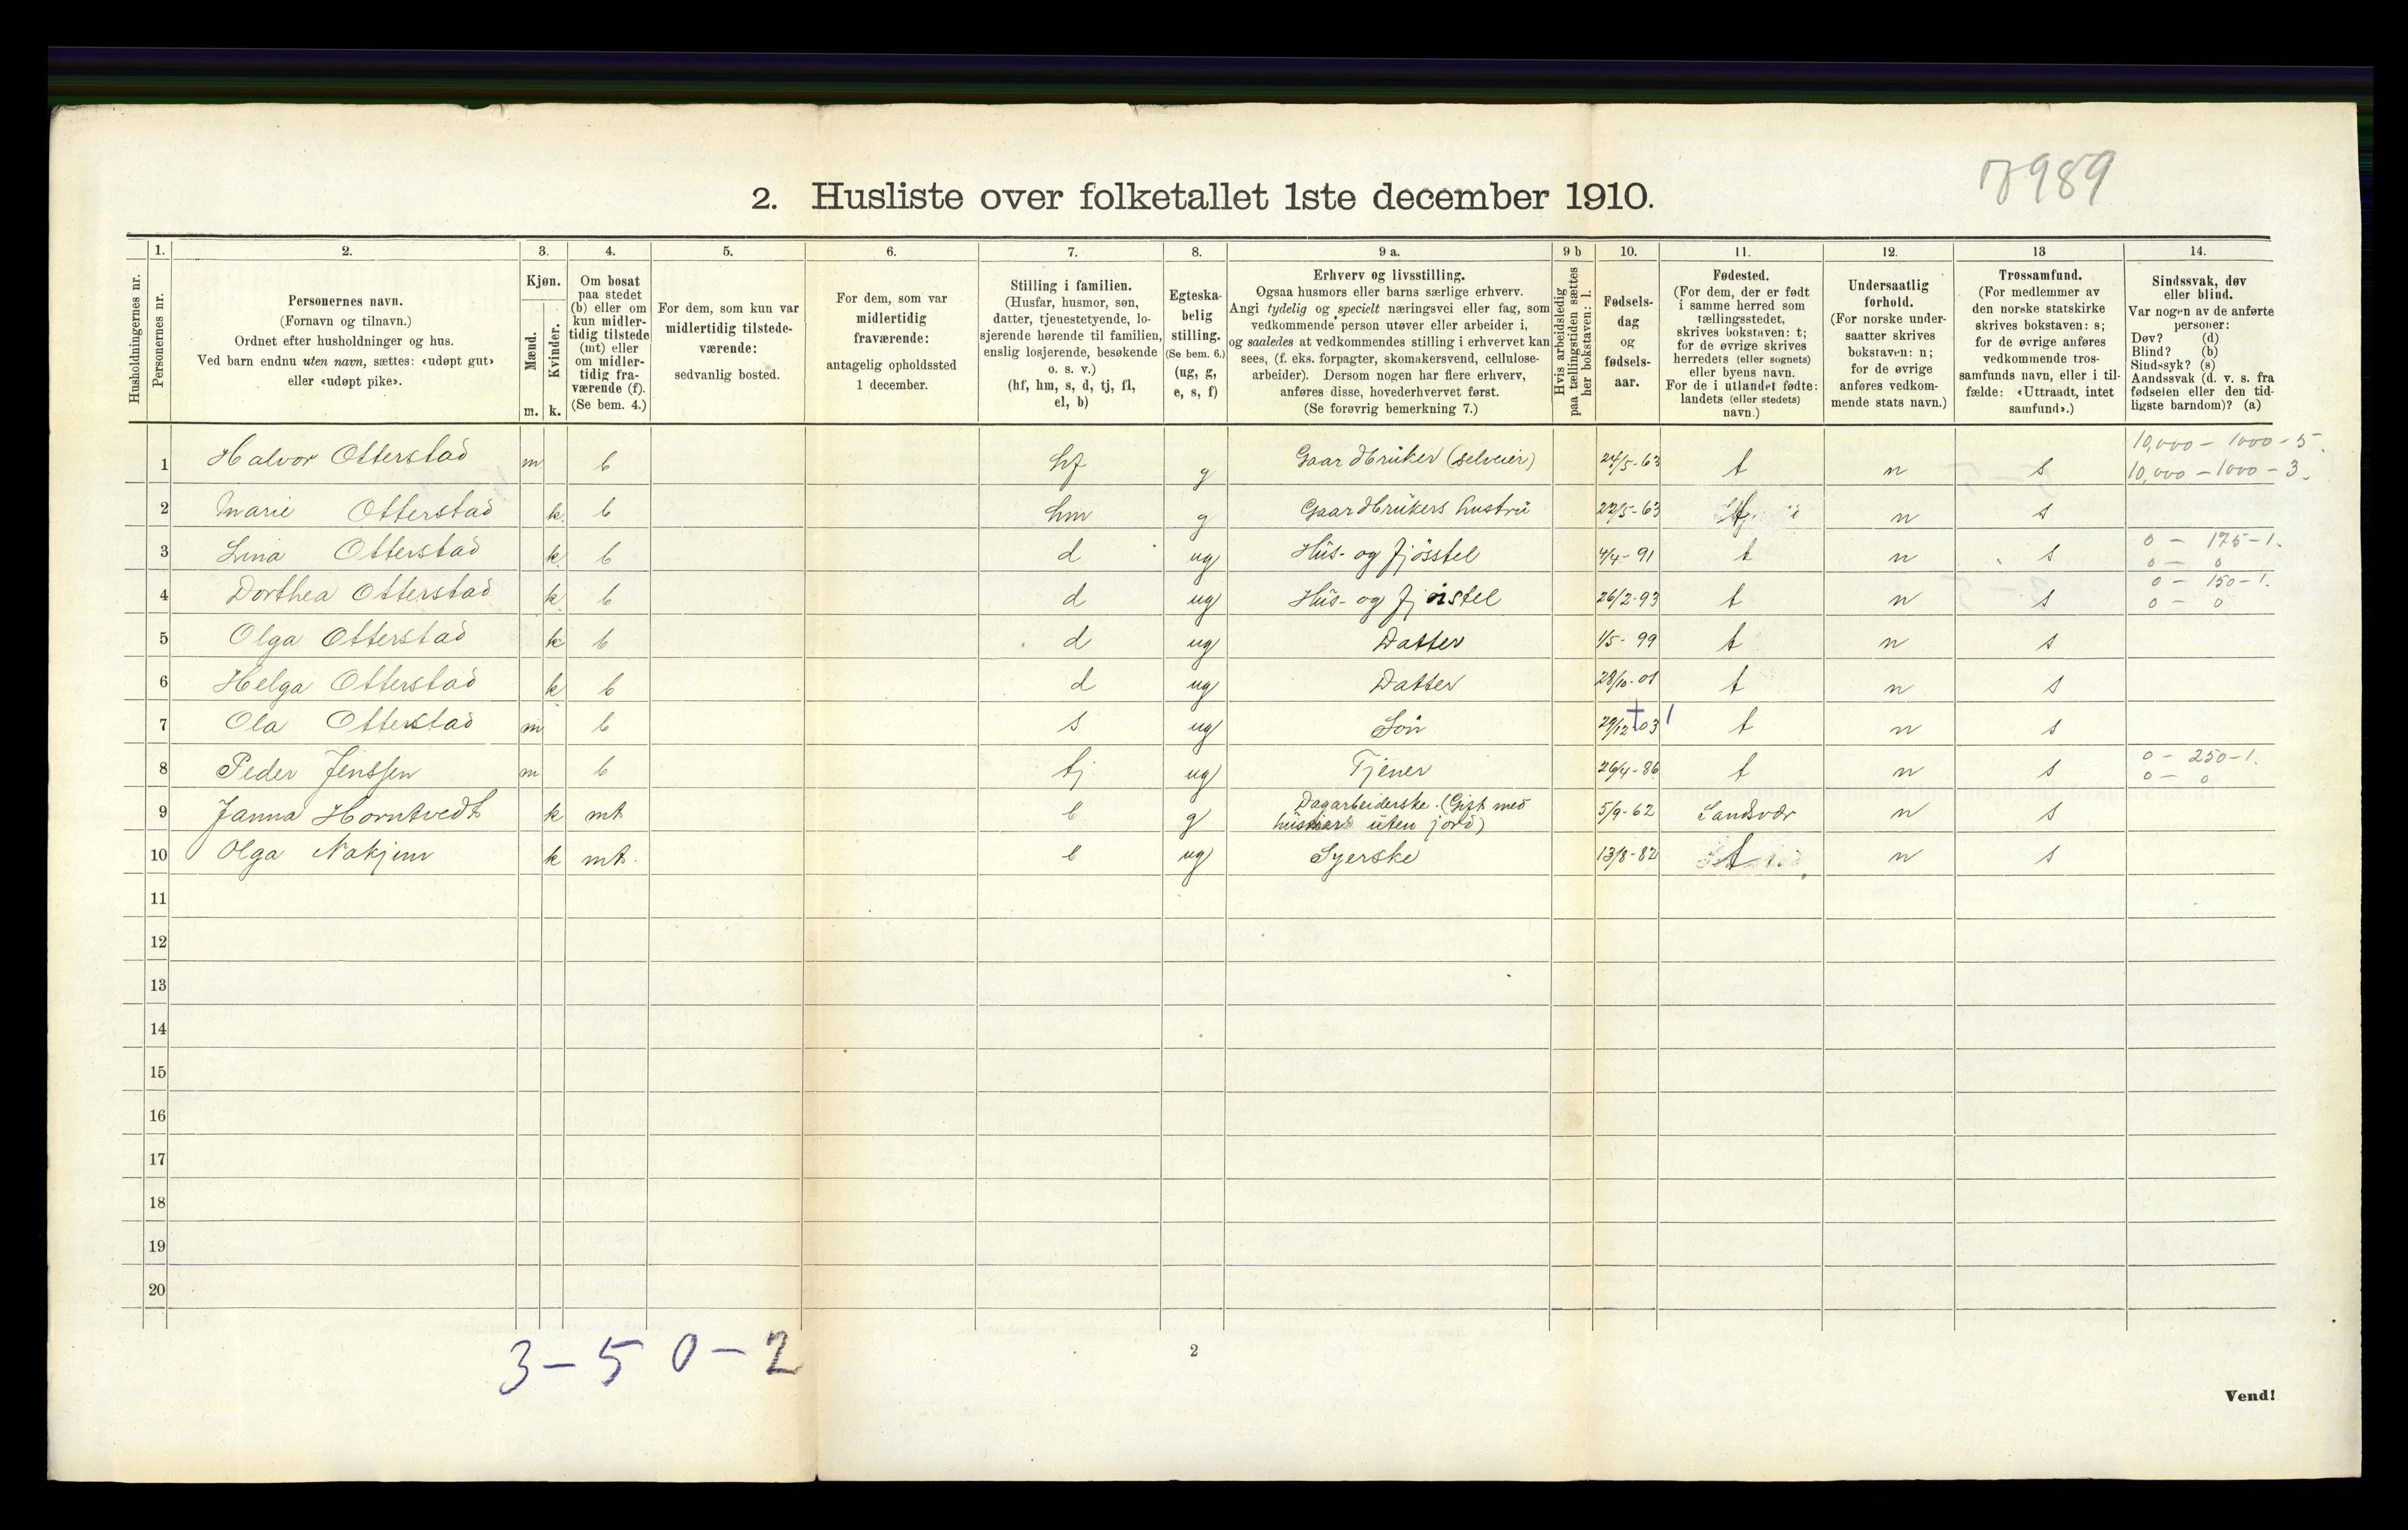 7989
2. Husliste over folketallet 1ste december 1910.
1. 2. 3. 4. 5. 6. 7. 8. 9 a. 9 b 10. 11. 12. 13 14.
Husholdningernes nr.
Personernes nr.
Personernes navn.
(Fornavn og tilnavn.)
Ordnet efter husholdninger og hus.
Ved barn endnu uten navn, sættes: «udøpt gut»
eller «udøpt pike».
Kjøn.
Mænd.
Kvinder.
m. k.
Om bosat
paa stedet
(b) eller om
kun midler-
tidig tilstede
(mt) eller
om midler-
tidig fra-
værende (f).
(Se bem. 4.)
For dem, som kun var
midlertidig tilstede-
værende:
sedvanlig bosted.
For dem, som var
midlertidig
fraværende:
antagelig opholdssted
1 december.
Stilling i familien.
(Husfar, husmor, søn,
datter, tjenestetyende, lo-
sjerende hørende til familien,
enslig losjerende, besøkende
o. s. v.)
(hf, hm, s, d, tj, fl,
el, b)
Egteska-
belig
stilling.
(Se bem. 6.)
(ug, g,
e, s, f)
Erhverv og livsstilling.
Ogsaa husmors eller barns særlige erhverv.
Angi tydelig og specielt næringsvei eller fag, som
vedkommende person utøver eller arbeider i,
og saaledes at vedkommendes stilling i erhvervet kan
sees, (f. eks. forpagter, skomakersvend, cellulose-
arbeider). Dersom nogen har flere erhverv,
anføres disse, hovederhvervet først.
(Se forøvrig bemerkning 7.)
Hvis arbeidsledig
paa tællingstiden sættes
her bokstaven: l.
Fødsels-
dag
og
fødsels-
aar.
Fødested.
(For dem, der er født
i samme herred som
tællingsstedet,
skrives bokstaven: t;
for de øvrige skrives
herredets (eller sognets)
eller byens navn.
For de i utlandet fødte:
landets (eller stedets)
navn.)
Undersaatlig
forhold.
(For norske under-
saatter skrives
bokstaven: n;
for de øvrige
anføres vedkom-
mende stats navn.)
Trossamfund.
(For medlemmer av
den norske statskirke
skrives bokstaven: s;
for de øvrige anføres
vedkommende tros-
samfunds navn, eller i til-
fælde: «Uttraadt, intet
samfund».)
Sindssvak, døv
eller blind.
Var nogen av de anførte
personer:
Døv? (d)
Blind? (b)
Sindssyk? (s)
Aandssvak (d. v. s. fra
fødselen eller den tid-
ligste barndom)? (a)
1 Halvor Otterstad m b hf g Gaardbruker (selveier) 24/5-63 t n s 10,000 - 1000 - 5.
10,000 - 1000 - 3.
2 Marie Otterstad k b hm g Gaardbrukers hustru 22/5-63 t n s
3 Lina Otterstad k b d ug Hus- og fjösstel 4/4-91 t n s 0 - 175-1.
0 - 0
4 Dorthea Otterstad k b d ug Hus- og fjösstel 26/2-93 t n s 0 - 150-1.
0 - 0
5 Olga Otterstad k b d ug Datter 1/5-99 t n s
6 Helga Otterstad k b d ug Datter 28/10-01 t n s
7 Ola Otterstad m b s ug Sön 29/12 03 t n s
8 Peder Jenssen m b tj ug Tjener 26/4-86 t n s 0 - 250-1.
0 - 0
9 Janna Horntvedt k mt b g Dagarbeiderske. (Gift med
uten jord) 5/9-62 Sandsvær n s
10 Olga Nakjem k mt. b ug Syerske 13/8-82 t n s
11
12
13
14
15
16
17
18
19
20
3-5 0-2
2
Vend!